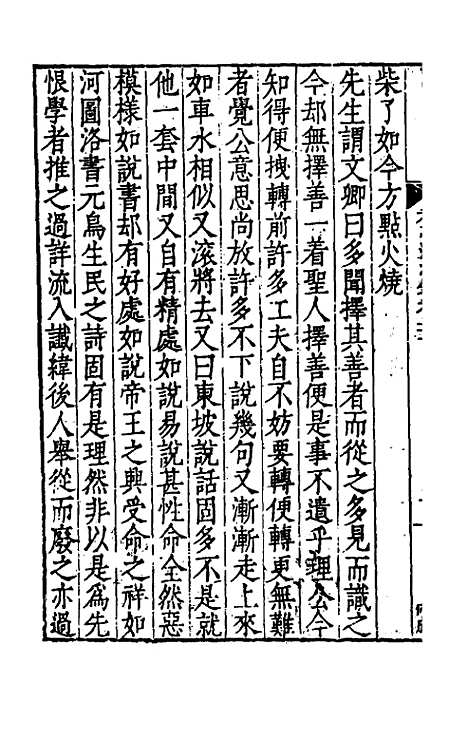 柴了如今方點火燒
先生謂文卿曰多聞擇其善者而從之多見而識之
今却無擇善一着聖人擇善便是事不遺乎理公今
知得便拽轉前許多工夫自不妨要轉便轉更無難
者覺公意思尚放許多不下說幾句又漸漸走上來
如車水相似又滾將去又曰東坡說話固多不是就
他一套中間又自有精處如說易說甚性命全然惡
模樣如說書却有好處如說帝王之興受命之祥如
河圖洛書元鳥生民之詩固有是理然非以是爲先
恨學者推之過詳流入讖緯後人舉從而廢之亦過